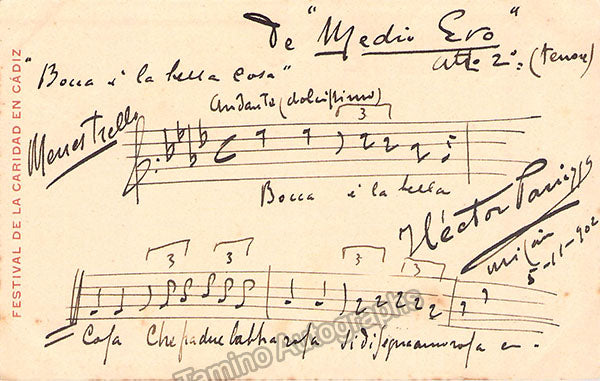 De "Medio Evo"
Atto 2º (tenore)
"Bocca è la bella cosa"
Andante (dolcissimo)
3
Menestrello
Bocca è la bella
Héctor Panizza
Milán
5-11-902
3 3 3 3
Cosa Che fa due labbra rosa
FESTIVAL DE LA CARIDAD EN CÁDIZ
Tamino Autographs